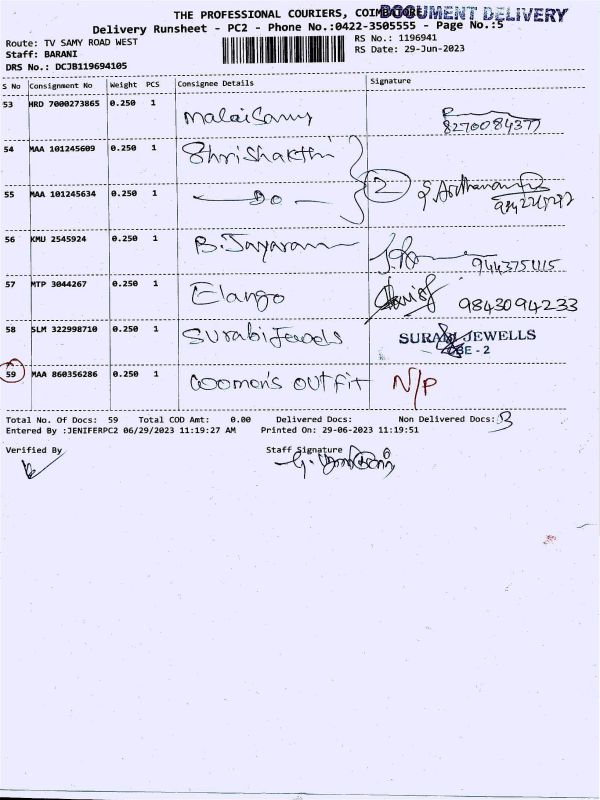 THE PROFESSIONAL COURIERS, COIMBATORE
DOCUMENT DELIVERY
Delivery Runsheet - PC2 - Phone No.:0422-3505555 - Page No.:5
Route: TV SAMY ROAD WEST
RS No.: 1196941
Staff: BARANI
RS Date: 29-Jun-2023
DRS No.: DCJB119694105
S No Consignment No Weight PCS Consignee Details Signature
53 HRD 7000273865 0.250 1 MalaiSamy 8270084377
54 MAA 101245609 0.250 1 ShriShakthi
55 MAA 101245634 0.250 1 — Do — 2
56 KMU 2545924 0.250 1 B. Jayaram
57 MTP 3044267 0.250 1 Elango 9843094233
58 SLM 322998710 0.250 1 Surabi Jewels SURABI JEWELLS
CBE - 2
59 MAA 860356286 0.250 1 Women's outfit N/P
Total No. Of Docs: 59 Total COD Amt: 0.00 Delivered Docs: Non Delivered Docs:
Entered By :JENIFERPC2 06/29/2023 11:19:27 AM Printed On: 29-06-2023 11:19:51
Verified By Staff Signature